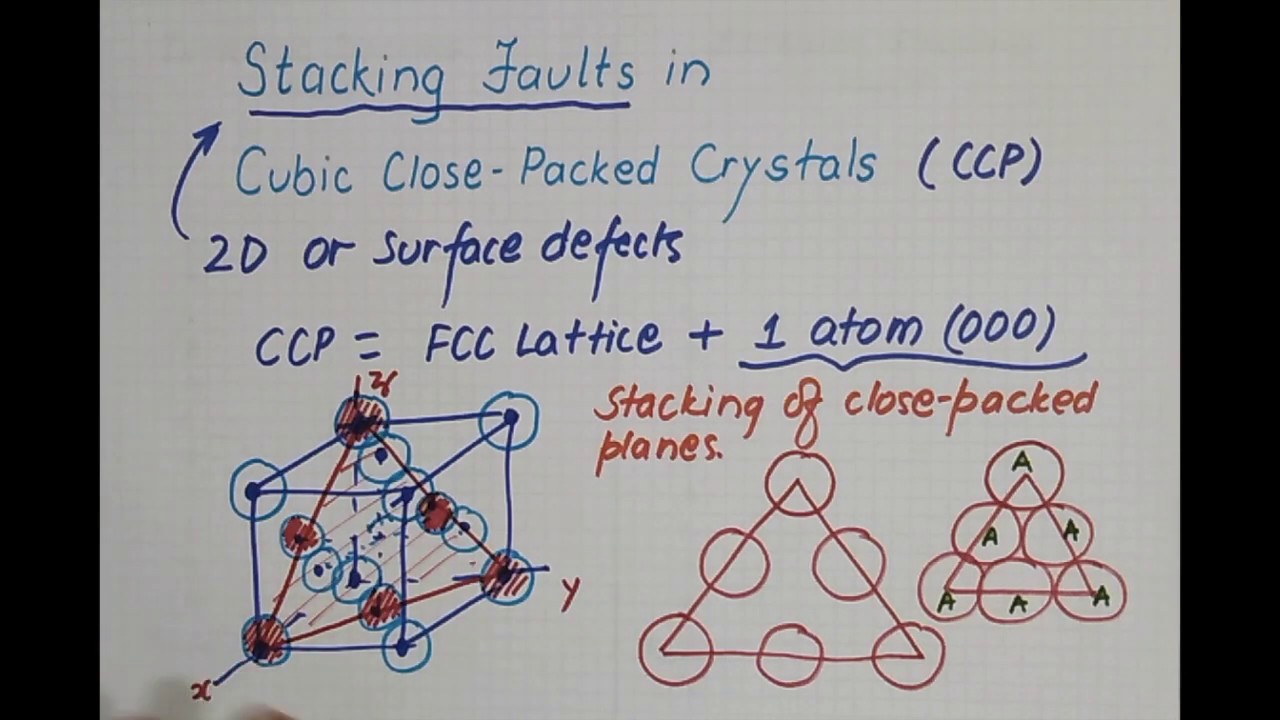 Stacking Faults in
Cubic Close-Packed Crystals (CCP)
2D or surface defects
CCP = FCC Lattice + 1 atom (000)
Stacking of close-packed
planes.
z
y
x
A
A A
A A A